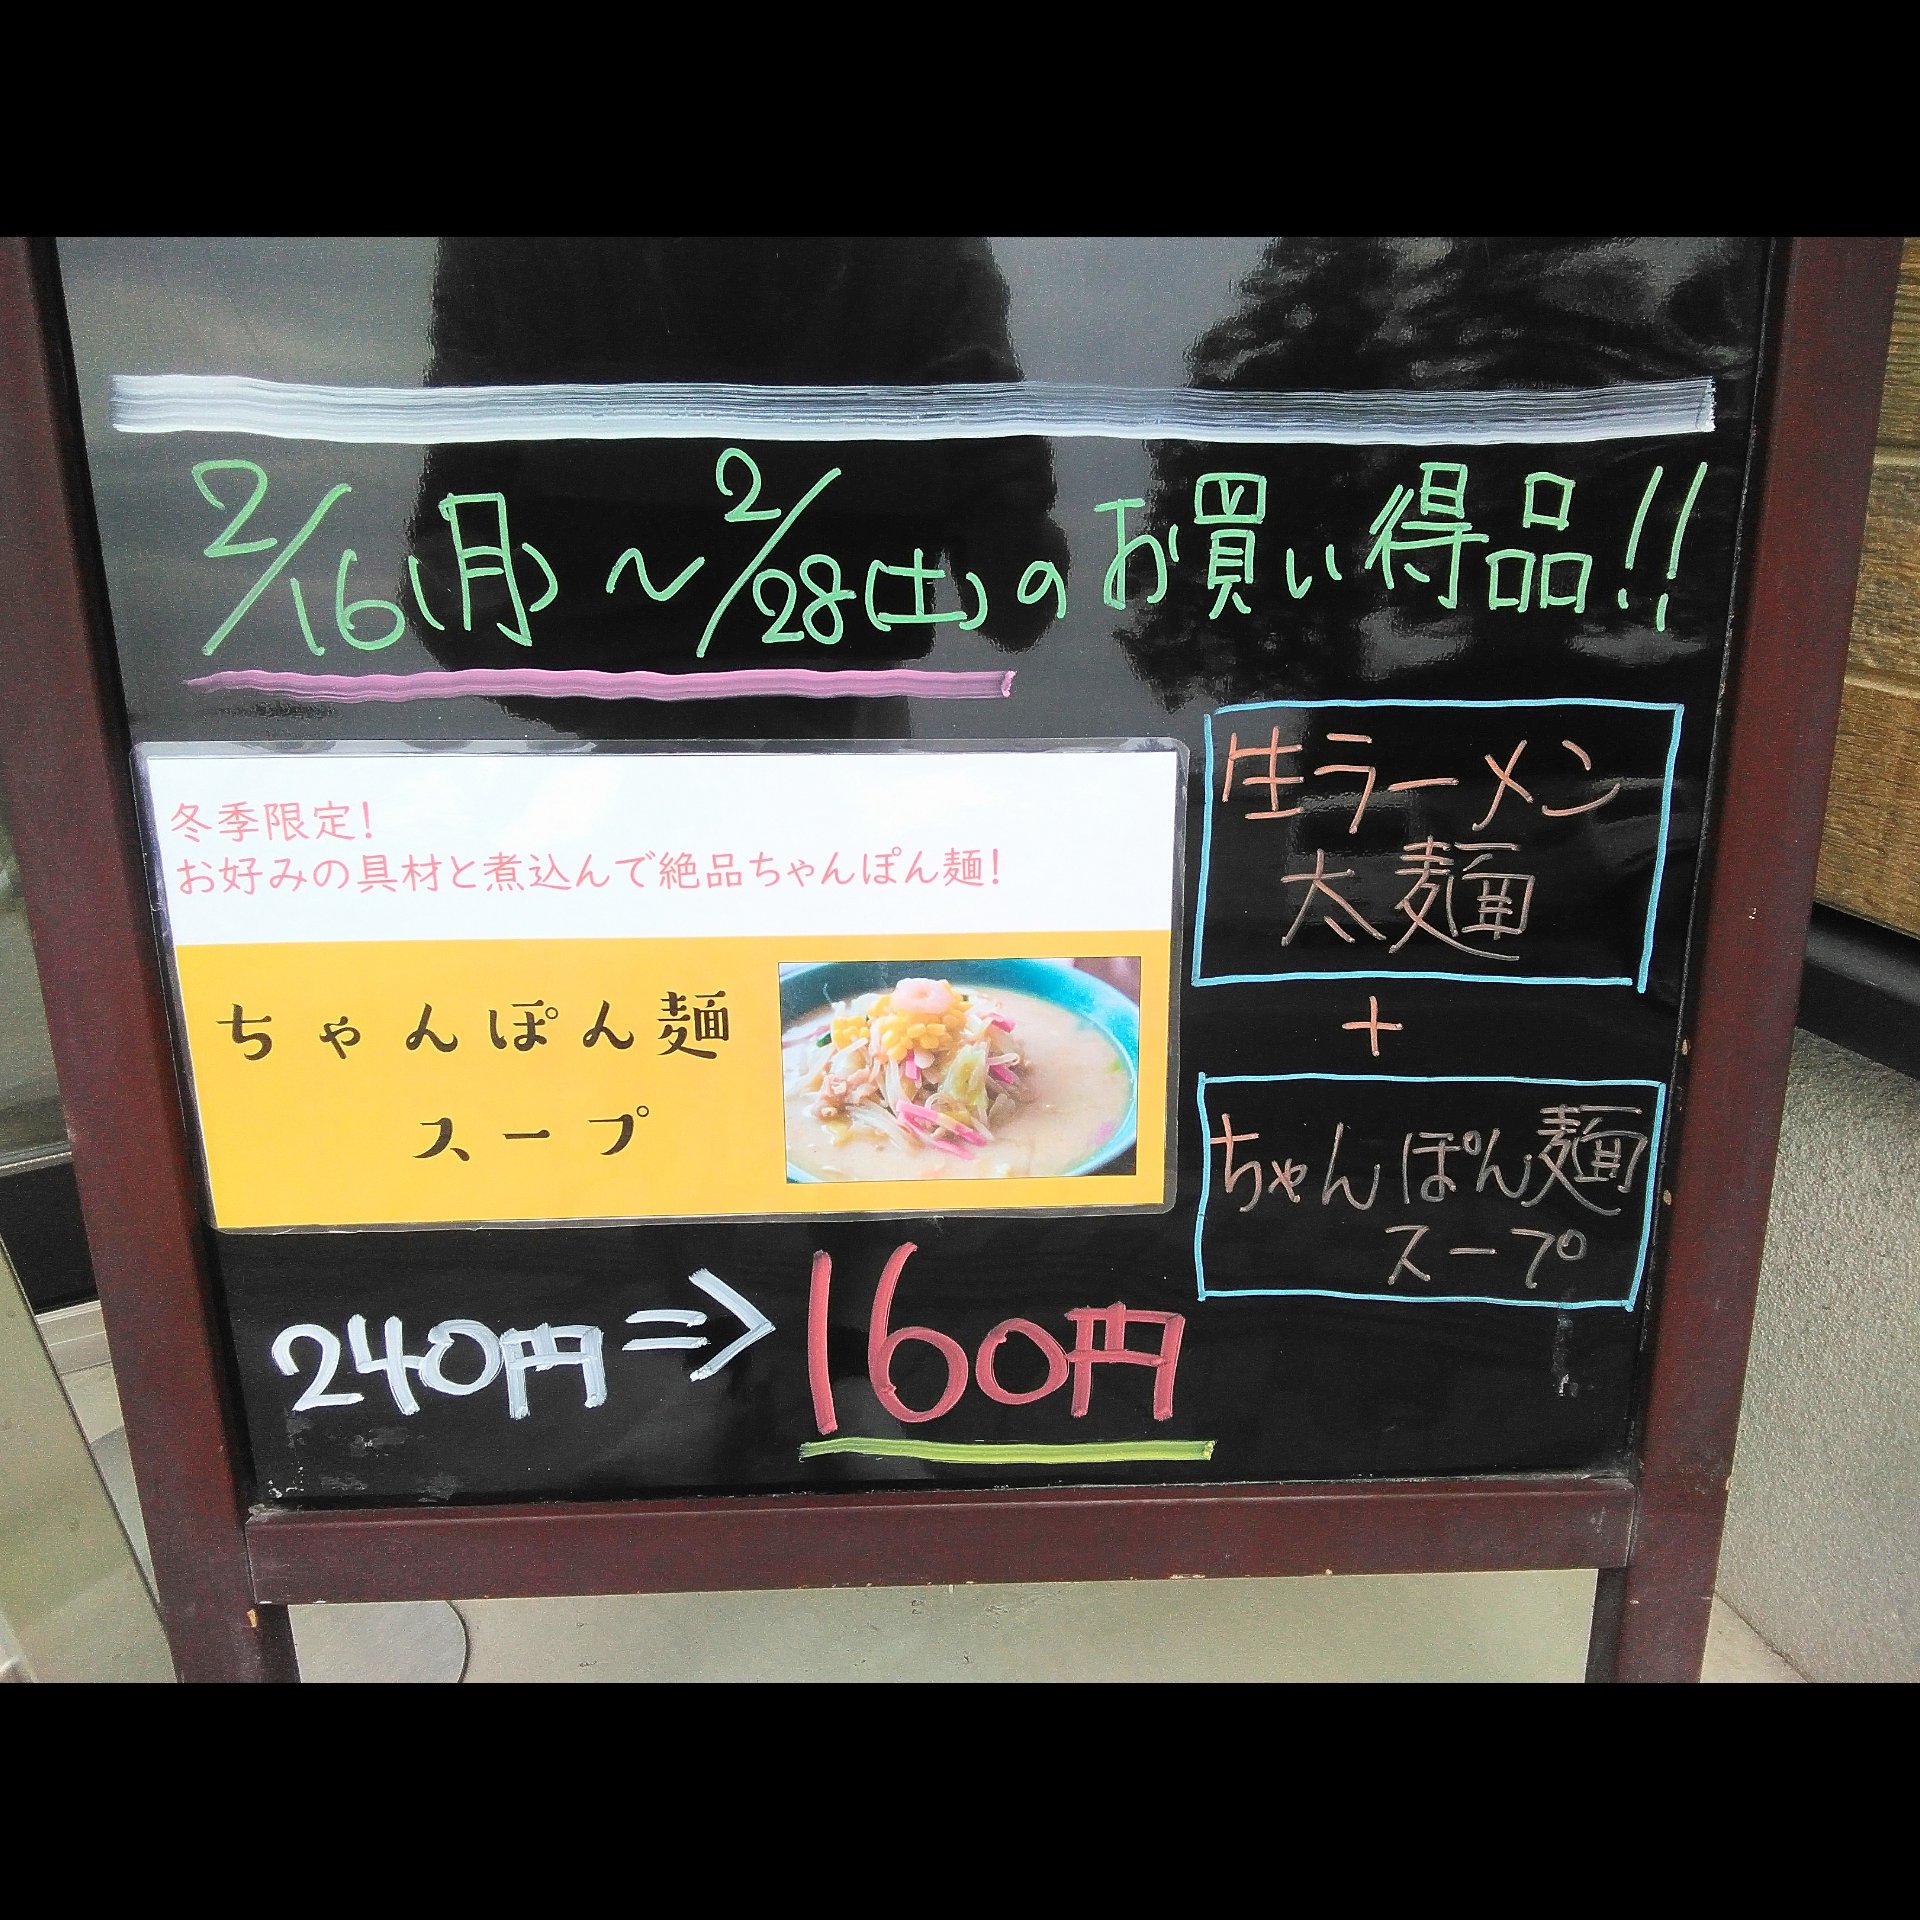 2/16(月)～2/28(土)のお買い得品!!
冬季限定!
お好みの具材と煮込んで絶品ちゃんぽん麺!
ちゃんぽん麺
スープ
生ラーメン
太麺
+
ちゃんぽん麺
スープ
240円⇒160円